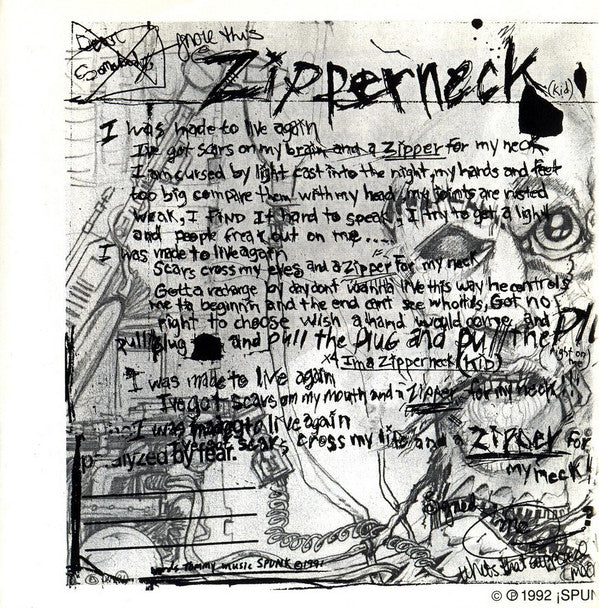 Dear Somebody
ignore this
Zipperneck (kid)
I was made to live again
I've got scars on my brain and a Zipper for my neck
I am cursed by light cast into the night, my hands and feet
too big compare them with my head, my joints are rusted
weak, I FIND IT hard to speak; I try to get a light
and people freak out on me....
I was made to live again
Scars cross my eyes and a Zipper for my neck
Gotta recharge by day don't wanna live this way he controls
me ta beginnin and the end cant see who it is, Got no
right to choose wish a hand would come and
pull plug and pull the PLUG and pull the PLU
(right on me)
x4 Im a Zipperneck (KID)
I was made to live again
I've got scars on my mouth and a Zipper for my neck!!!
I was made to live again
I've got scars cross my life and a ZIPPER for
p alyzed by fear.
my neck!
Signed
me
words Tommy music SPUNK © 1991
whats that
© ℗ 1992 ¡SPUN